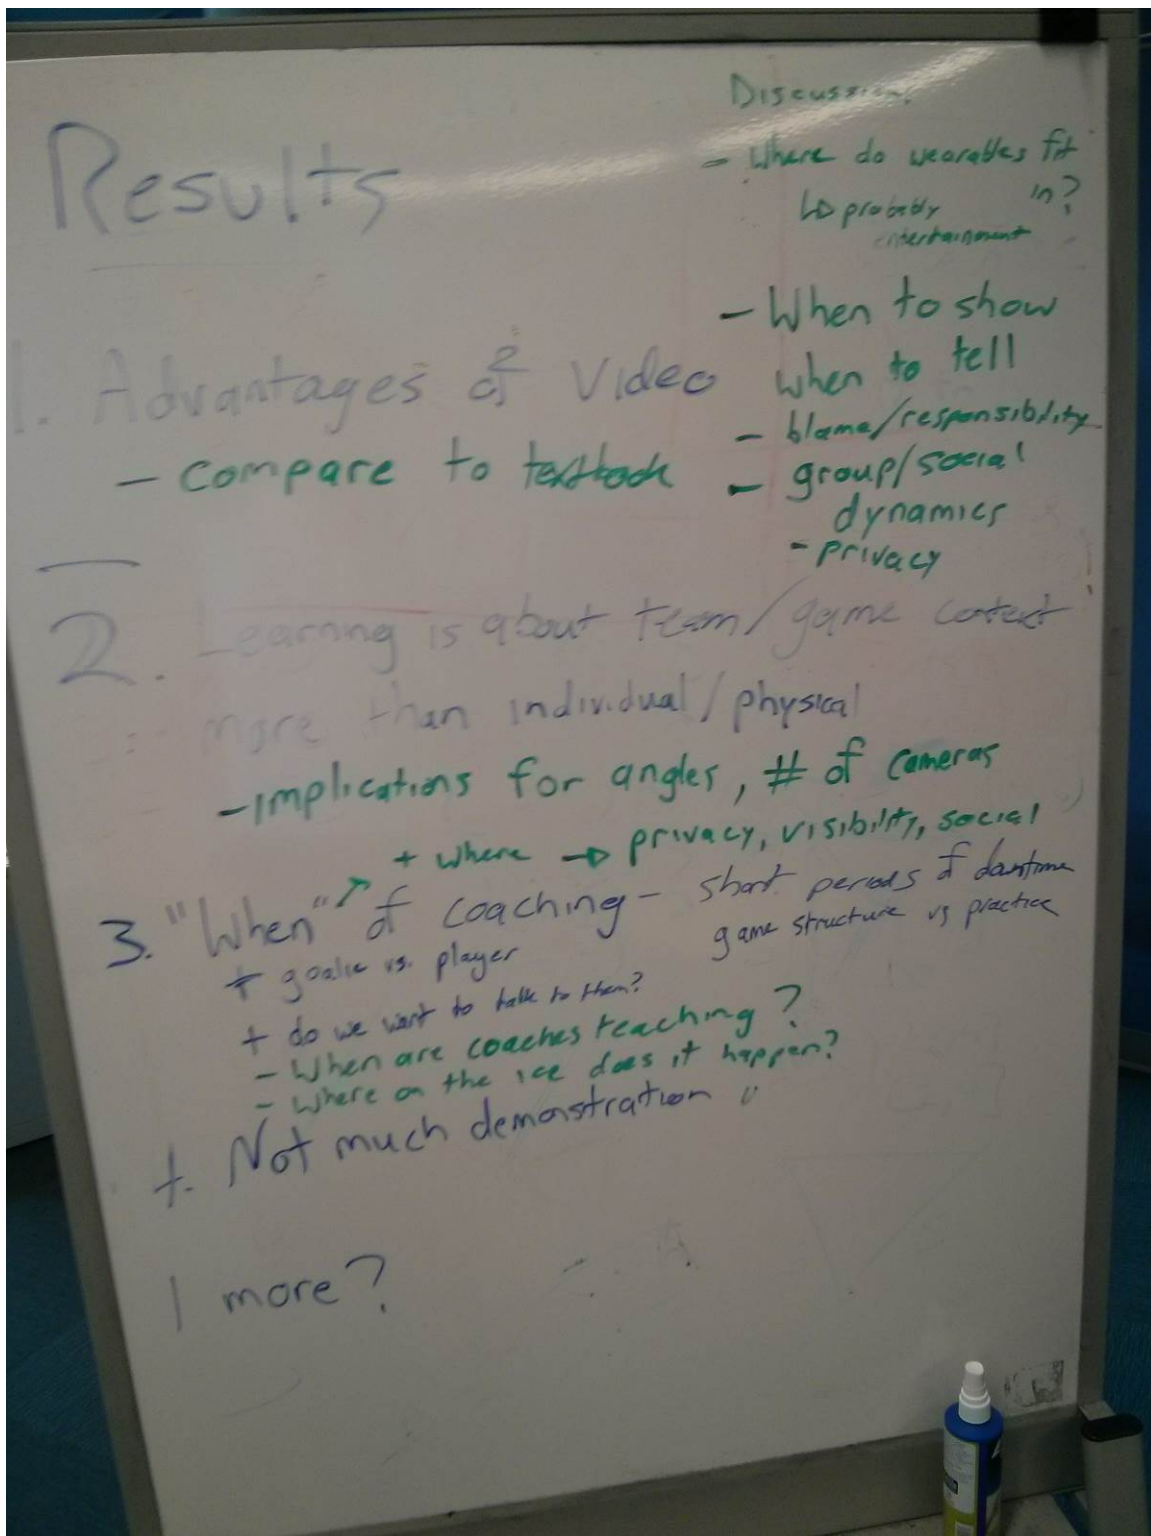 Results
1. Advantages of Video
- Compare to textbook
2. Learning is about team/game context
more than individual/physical
- Implications for angles, # of cameras
+ where → privacy, visibility, social
3. "When" of coaching - short periods of downtime
game structure vs practice
+ goalie vs. player
+ do we want to talk to them?
- When are coaches teaching?
- Where on the ice does it happen?
+. Not much demonstration
1 more?
Discussion
- Where do wearables fit
in?
↳ probably
entertainment
- When to show
when to tell
- blame/responsibility
- group/social
dynamics
- privacy